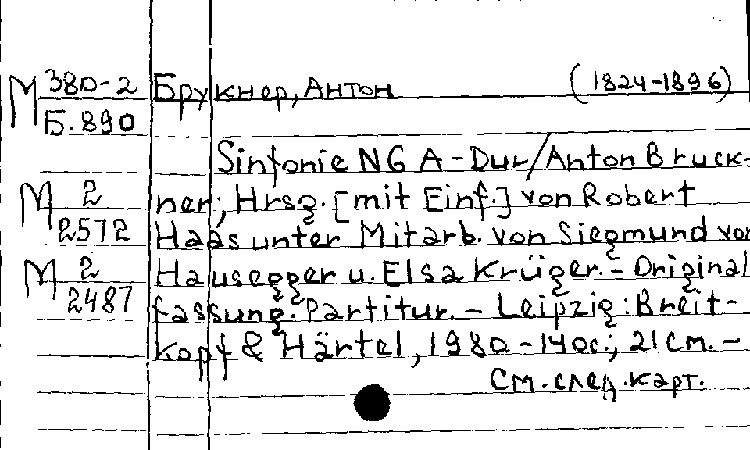 М 380-2 Брукнер, Антон (1824-1896)
Б.890
Sinfonie N6 A-Dur/Anton Bruck-
М 2 ner; Hrsg. [mit Einf.] von Robert
2572 Haas unter Mitarb. von Siegmund von
М 2 Hausegger u. Elsa Krüger. - Original
2487 fassung. Partitur. - Leipzig: Breit-
kopf & Härtel, 1980 - 140с.; 21 см. -
См. след. карт.